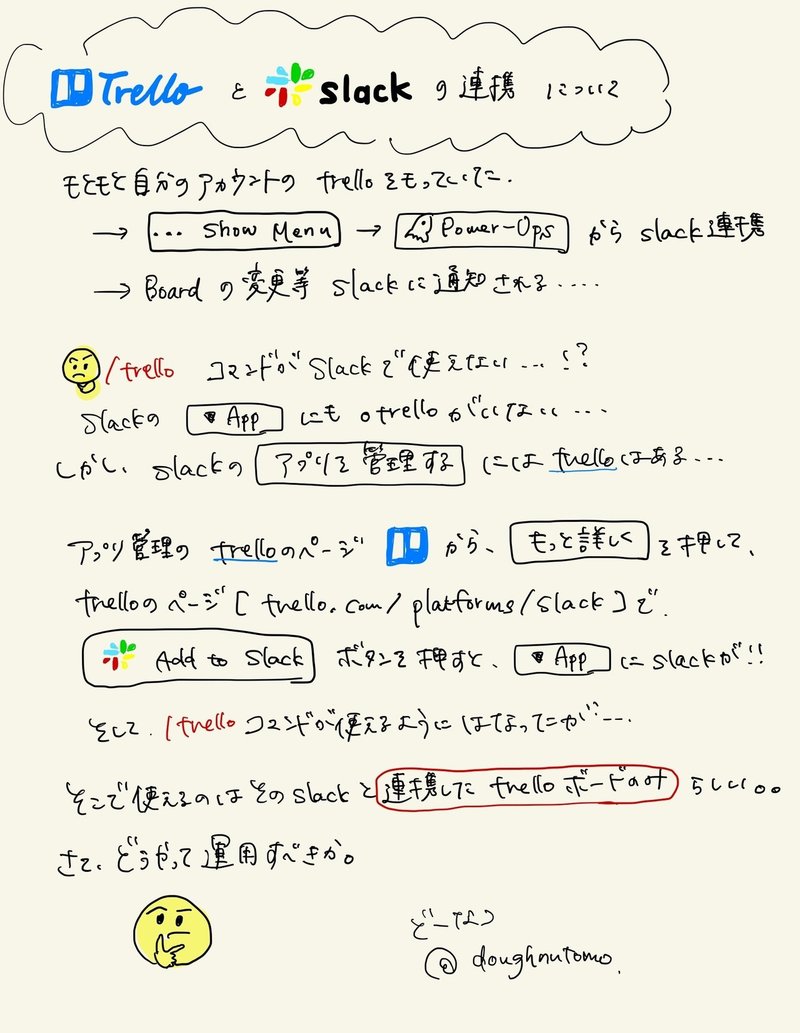 Trello と slack の連携 について
もともと自分のアカウントの trelloをもっていて、
→ ... Show Menu → Power-Ops から slack連携
→ Board の変更等 Slackに通知される....
/trello コマンドが Slackで使えない...!?
Slackの App にも trelloがいない...
しかし、slackの アプリを管理する には trelloはある...
アプリ管理の trelloのページ から、もっと詳しく を押して、
trelloのページ[ trello.com/platforms/slack ]で、
Add to Slack ボタンを押すと、 App にslackが!!
そして、/trello コマンドが使えるようにはなったが...
そこで使えるのはそのslackと連携した trelloボードのみ らしい。。
さて、どうやって運用すべきか。
どーなつ
@doughnutomo.